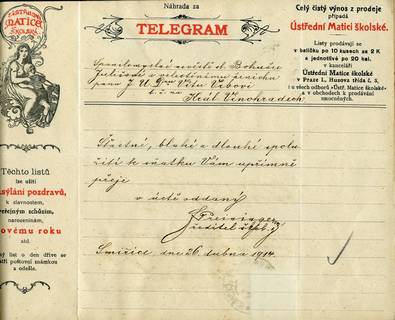 Náhrada za
TELEGRAM
ÚSTŘEDNÍ
MATICE
ŠKOLSKÁ
Celý čistý výnos z prodeje
připadá
Ústřední Matici školské.
Listy prodávají se
v balíčku po 10 kusech za 2 K
a jednotlivě po 20 hal.
v kanceláři
Ústřední Matice školské
v Praze I., Husova třída č. 3,
i u všech odborů »Ústř. Matice školské«
a v obchodech k prodávání
zmocněných.
slečně Bohuši
a velectěnému ženichu
panu J. U. Dru Vítu Vrbovi
Král. Vinohradech
Šťastné, blahé a dlouhé spolu
žití k sňatku Vám upřímně
přeje
v úctě oddaný
ředitel
Smiřice, dne 26. dubna 1914.
Těchto listů
lze užíti
zasýlání pozdravů,
k slavnostem,
veřejným schůzím,
narozeninám,
Novému roku
atd.
list o den dříve se
poštovní známkou
a odešle.